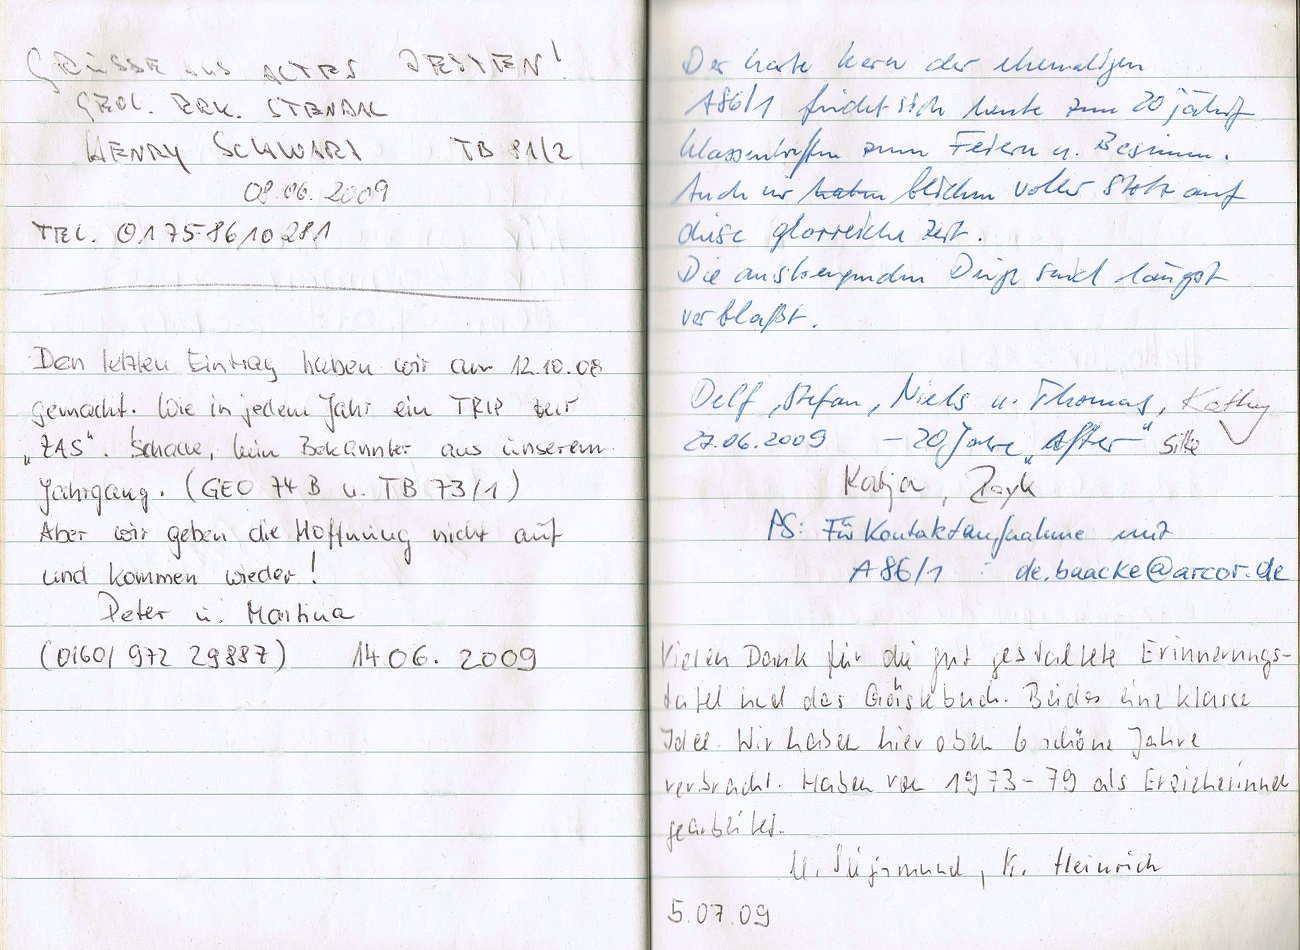 GRÜSSE AUS ALTEN ZEITEN!
GEOL. ERK. STENDAL
HENRY SCHWARZ TB 81/2
08.06.2009
TEL. 0175-8610281
Den letzten Eintrag haben wir am 12.10.08
gemacht. Wie in jedem Jahr ein TRIP zur
„ZAS“. Schade, kein Bekannter aus unserem
Jahrgang. (GEO 74 B u. TB 73/1)
Aber wir geben die Hoffnung nicht auf
und kommen wieder!
Peter u. Martina
(0160/ 972 29887) 14.06.2009
Der harte Kern der ehemaligen
A86/1 findet sich heute zum 20 jährig
Klassentreffen zum Feiern u. Besinnen.
Auch wir haben blicken voller Stolz auf
diese glorreiche Zeit.
Die anstrengenden Dinge sind längst
verblaßt.
Delf, Stefan, Niels u. Thomas, Kathy
27.06.2009 – 20 Jahre „After“ Silke
Katja,
PS: Für Kontaktaufnahme mit
A86/1 : de.baacke@arcor.de
Vielen Dank für die gut gestaltete Erinnerungs-
tafel und das Gästebuch. Beides eine klasse
Idee. Wir haben hier oben 6 schöne Jahre
verbracht. Haben von 1973-79 als Erzieherinnen
gearbeitet.
K. Heinrich
5.07.09